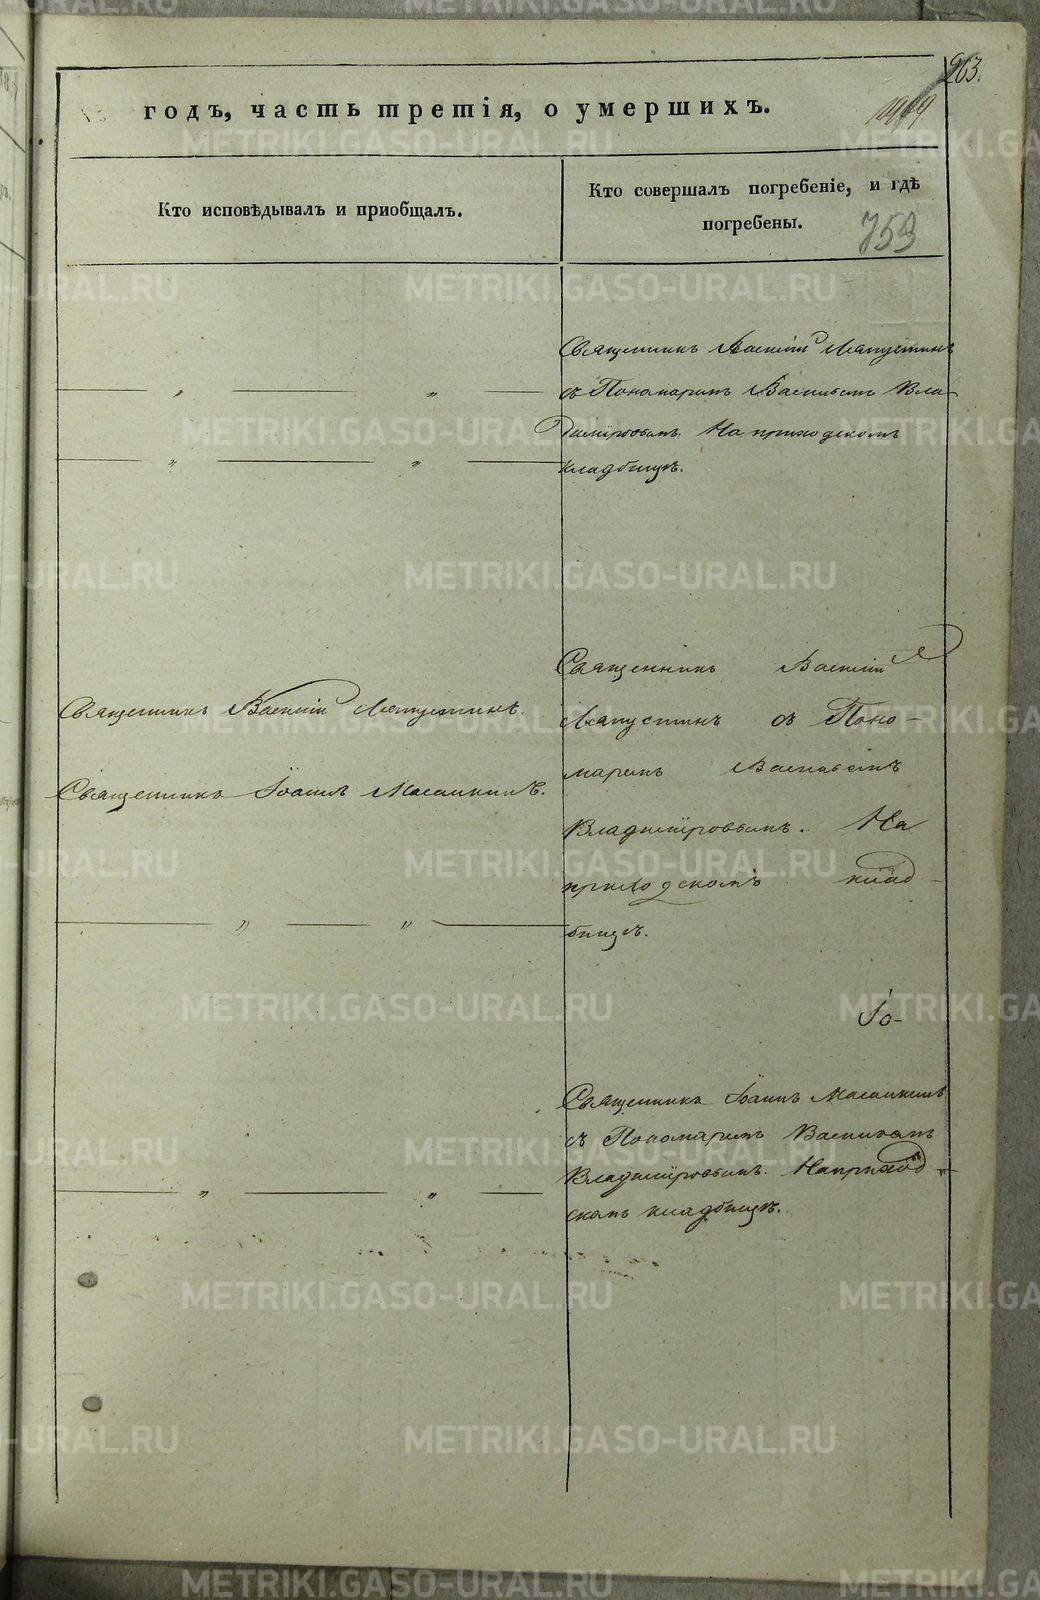 263.
годъ, часть третія, о умершихъ.
1909
Кто исповѣдывалъ и приобщалъ.
Кто совершалъ погребеніе, и гдѣ
погребены.
753
Священникъ Василій
съ Пономаремъ Васильемъ Вла-
диміровымъ. На приходскомъ
кладбищѣ.
Священникъ Василій
Священникъ Іоаннъ
Священникъ Василій
съ Поно-
маремъ Васильемъ
Владиміровымъ. На
приходскомъ клад-
бищѣ.
Іо-
Священникъ Іоаннъ
съ Пономаремъ Васильемъ
Владиміровымъ. На приход-
скомъ кладбищѣ.
METRIKI.GASO-URAL.RU